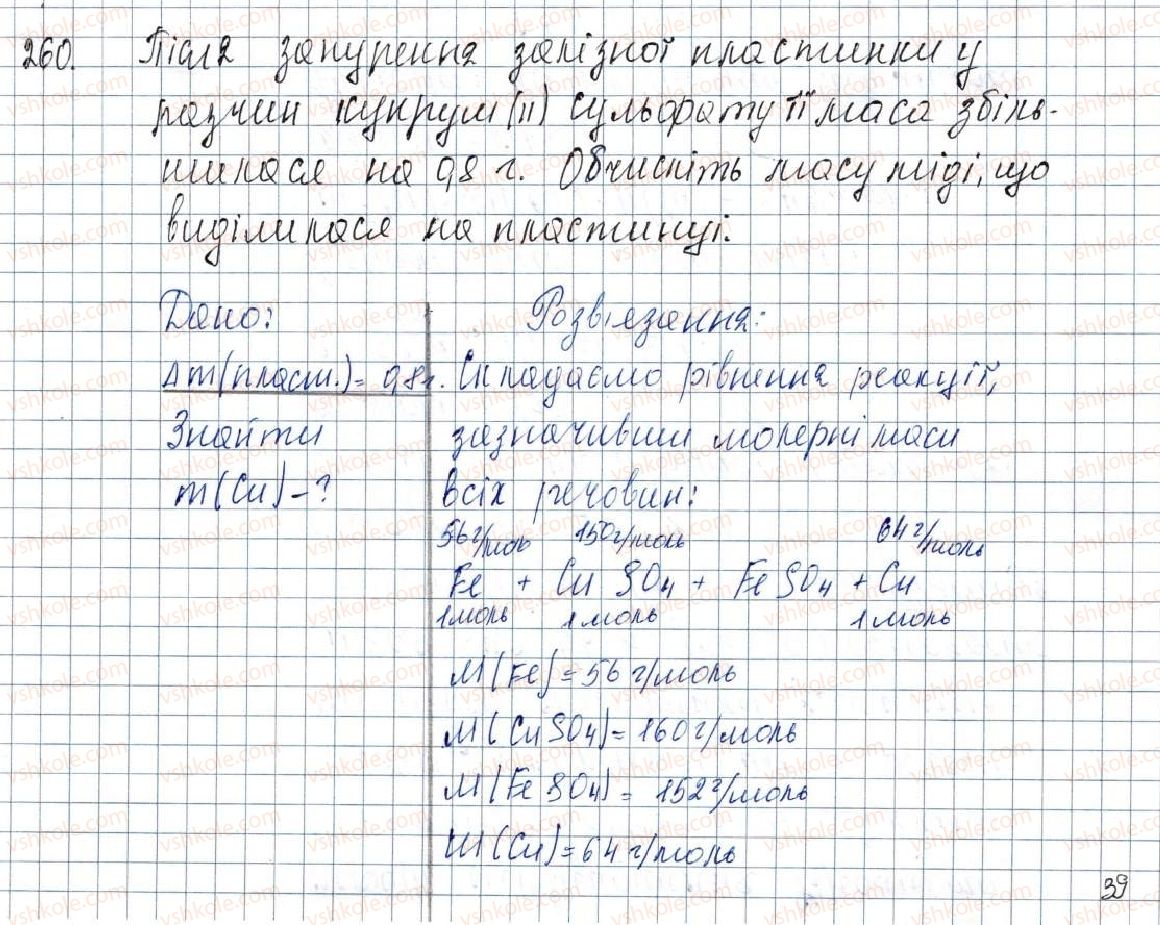 260. Після занурення залізної пластинки у
розчин купрум (II) сульфату її маса збіль-
шилася на 0,8 г. Обчисліть масу міді, що
виділилася на пластинці.
Дано:
Δm(пласт.) = 0,8 г.
Знайти
m(Cu) - ?
Розв'язання:
Складаємо рівнення реакції,
зазначивши молерні маси
всіх речовин:
56 г/моль 150 г/моль 64 г/моль
Fe + Cu SO4 + Fe SO4 + Cu
1 моль 1 моль 1 моль
M(Fe) = 56 г/моль
M(CuSO4) = 160 г/моль
M(FeSO4) = 152 г/моль
M(Cu) = 64 г/моль
39
vshkole.com